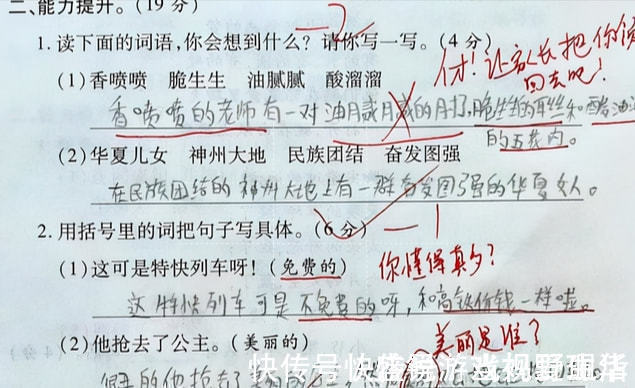 二、能力提升。(19分)
-2
1.读下面的词语,你会想到什么?请你写一写。(4分)
(1)香喷喷 脆生生 油腻腻 酸溜溜
让家长把你领
回去吧!
香喷喷的老师有一对油腻腻的肘子,脆生生的耳丝和酸溜溜
的五花肉。
(2)华夏儿女 神州大地 民族团结 奋发图强
在民族团结的神州大地上有一群奋发图强的华夏女人。
2.用括号里的词把句子写具体。(6分) -1
(1)这可是特快列车呀!(免费的) 你懂得真多?
这特快列车可是不免费的呀,和高铁价钱一样啦。
(2)他抢去了公主。(美丽的) 美丽是谁?
的他抢去了
快传号